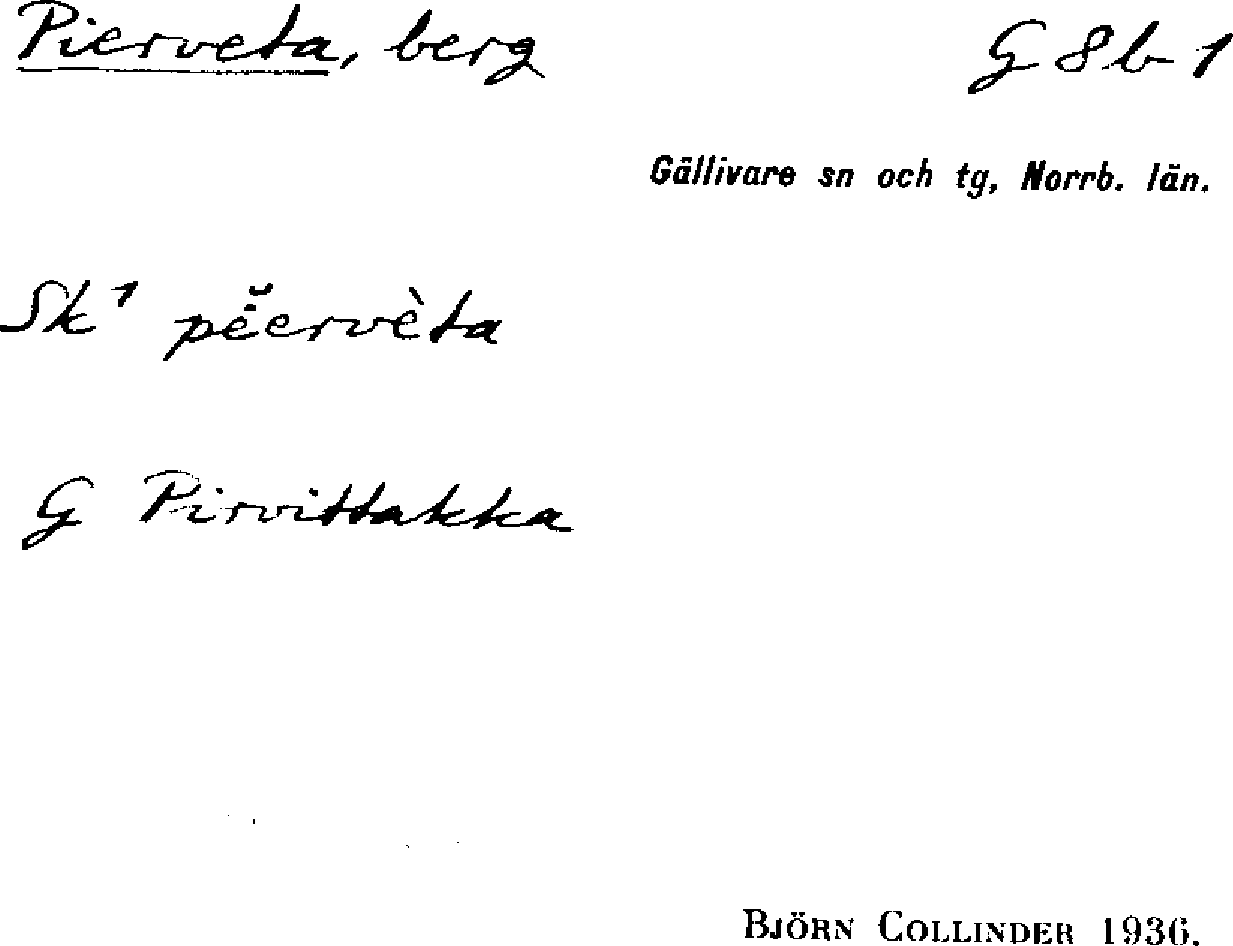 Pierveta, berg G 8b 1
Gällivare sn och tg, Norrb. län.
Sk¹ pë̆ervèta
G Pirvittakka
BJÖRN COLLINDER 1936.